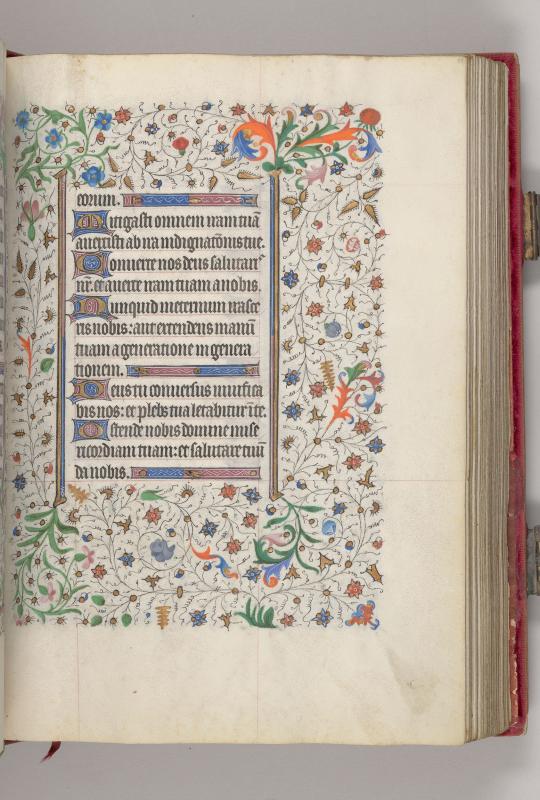 eorum.
Mitigasti omnem iram tuā
auertisti ab ira indignatōnis tue.
Conuerte nos deus salutaris
nr̄. et auerte iram tuam a nobis.
Nunquid meternum irasce
ris nobis: aut extendens manū
tuam a generatione in genera
tionem.
Deus tu conuersus uiuifica
bis nos: et plebs tua letabitur ī te.
Ostende nobis domine mise
ricordiam tuam: et salutare tuū
da nobis.